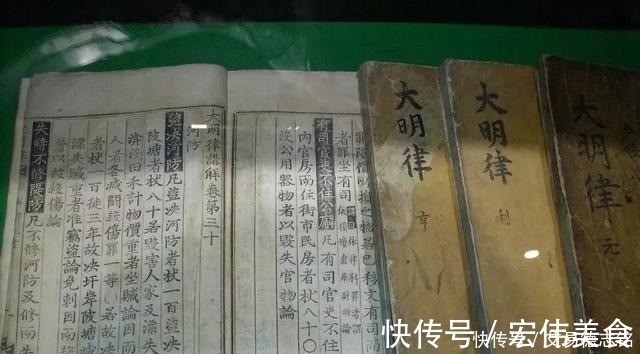 者罪坐有司
有司官吏不住公廨凡有司官吏不住
內官房而住街市民房者杖八十○
沒公用器物者以毀失官物論
大明律講解卷第三十
河防
盜決河防凡盜決河防者杖一百盜
陂塘者杖八十若毀害人家及漂失
沒田禾計物價重者坐贓論因而
人者各減鬪殺傷罪一等若故決
者杖一百徒三年故決圩岸陂塘減
漂失贓重者准竊盜論免刺因而
者以故殺傷論
失時不修隄防凡不修河防及修而失
大明律 亨
大明律 利
大明律 元
快传号 / 宏伟美食